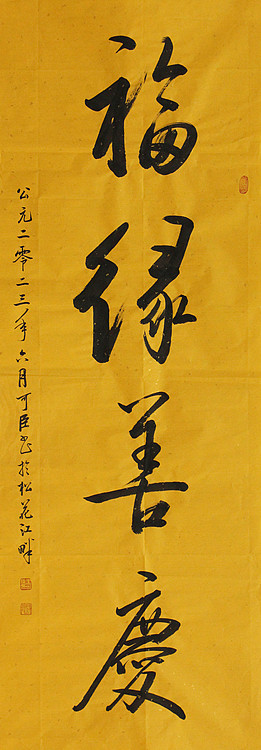 福缘善慶
公元二零二三年六月可臣书於松花江畔